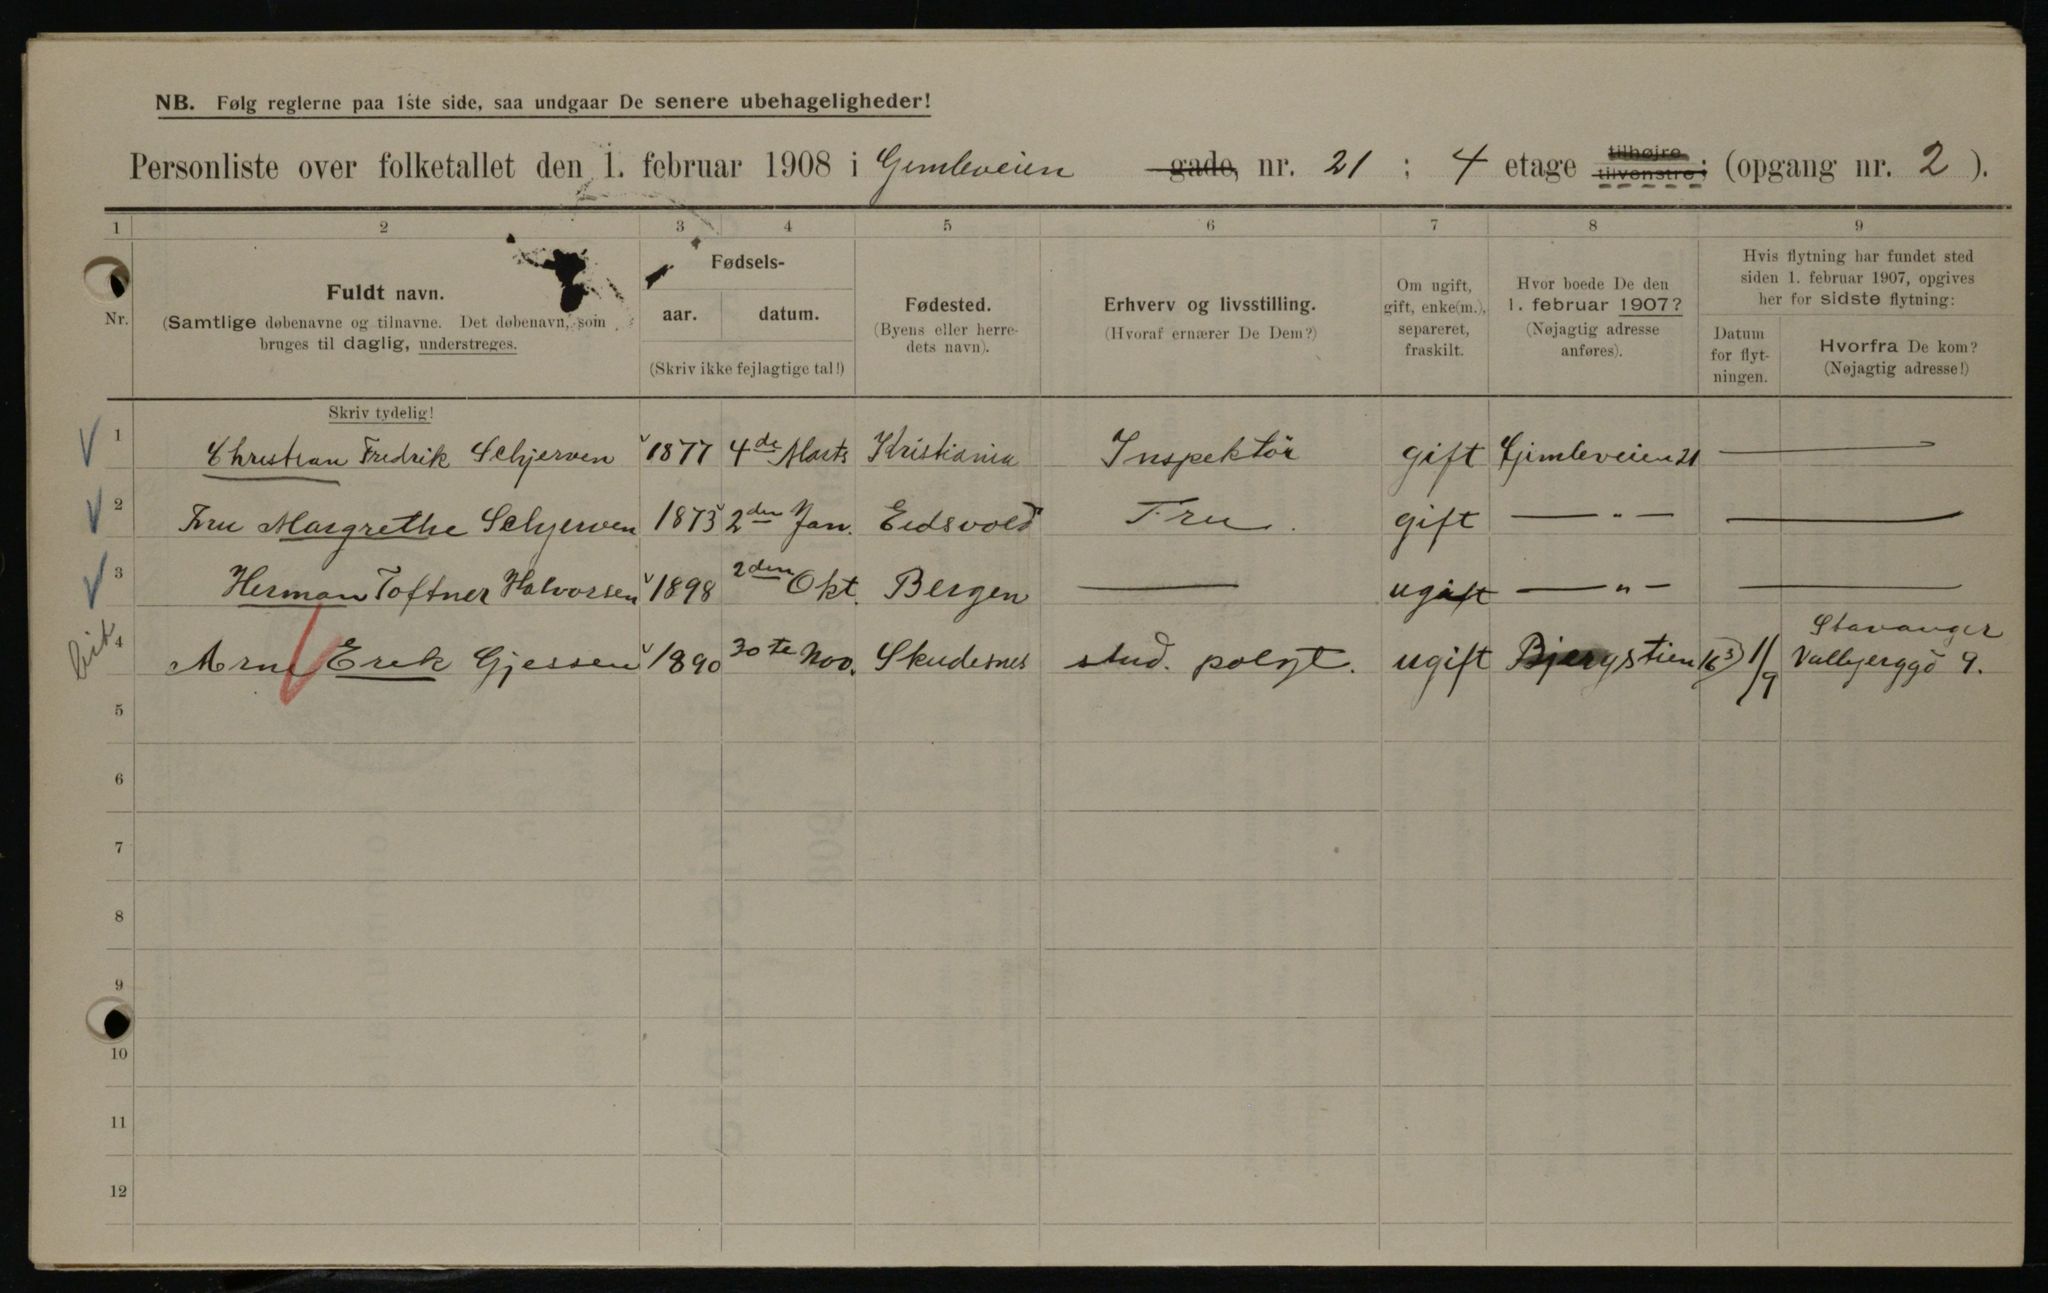 NB. Følg reglerne paa 1ste side, saa undgaar De senere ubehageligheder!
Personliste over folketallet den 1. februar 1908 i Gimleveien gade, nr. 21 ; 4 etage tilhøjre tilvenstre; (opgang nr. 2 ).
1 2 3 4 5 6 7 8 9
Nr.
Fuldt navn.
(Samtlige døbenavne og tilnavne. Det døbenavn, som
bruges til daglig, understreges.
Skriv tydelig!
Fødsels-
aar. datum.
(Skriv ikke fejlagtige tal!)
Fødested.
(Byens eller herre-
dets navn).
Erhverv og livsstilling.
(Hvoraf ernærer De Dem?)
Om ugift,
gift, enke(m.),
separeret,
fraskilt.
Hvor boede De den
1. februar 1907?
(Nøjagtig adresse
anføres).
Hvis flytning har fundet sted
siden 1. februar 1907, opgives
her for sidste flytning:
Datum
for flyt-
ningen.
Hvorfra De kom?
(Nøjagtig adresse!)
1 Christian Fredrik Schjerven 1877 4de Marts Kristiania Inspektör gift Gimleveien 21 —
2 Fru Margrethe Schjerven 1873 2den Jan. Eidsvold Fru. gift — " — —
3 Herman Toftner Halvorsen 1898 2den Okt. Bergen — ugift — " — —
4 Arne Erik Gjessen 1890 30te Nov. Skudesnes stud. polyt. ugift Bjergstien 16 1/9 Stavanger
Valbjerggd 9.
5
6
7
8
9
10
11
12